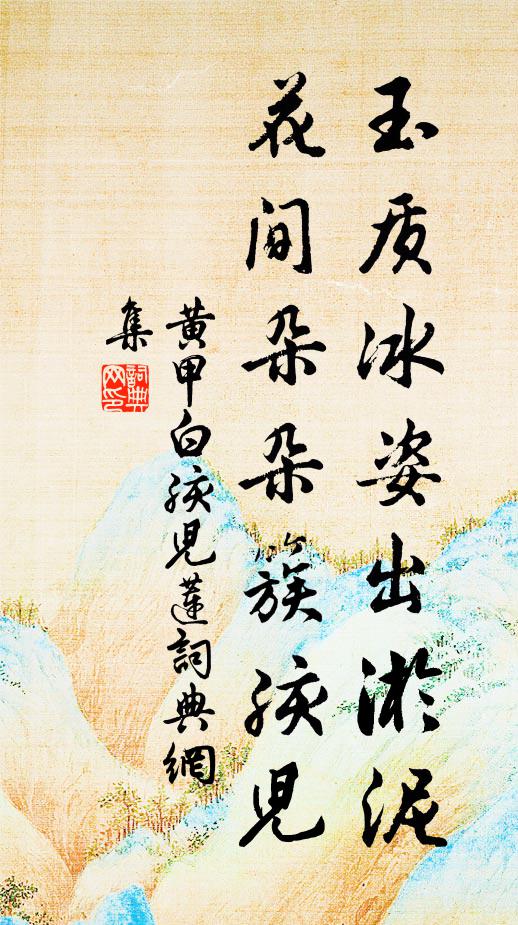 玉质冰姿出淤泥
花间朵朵簇孩儿
黄甲白孩儿莲詞典網
集
詞典
网印